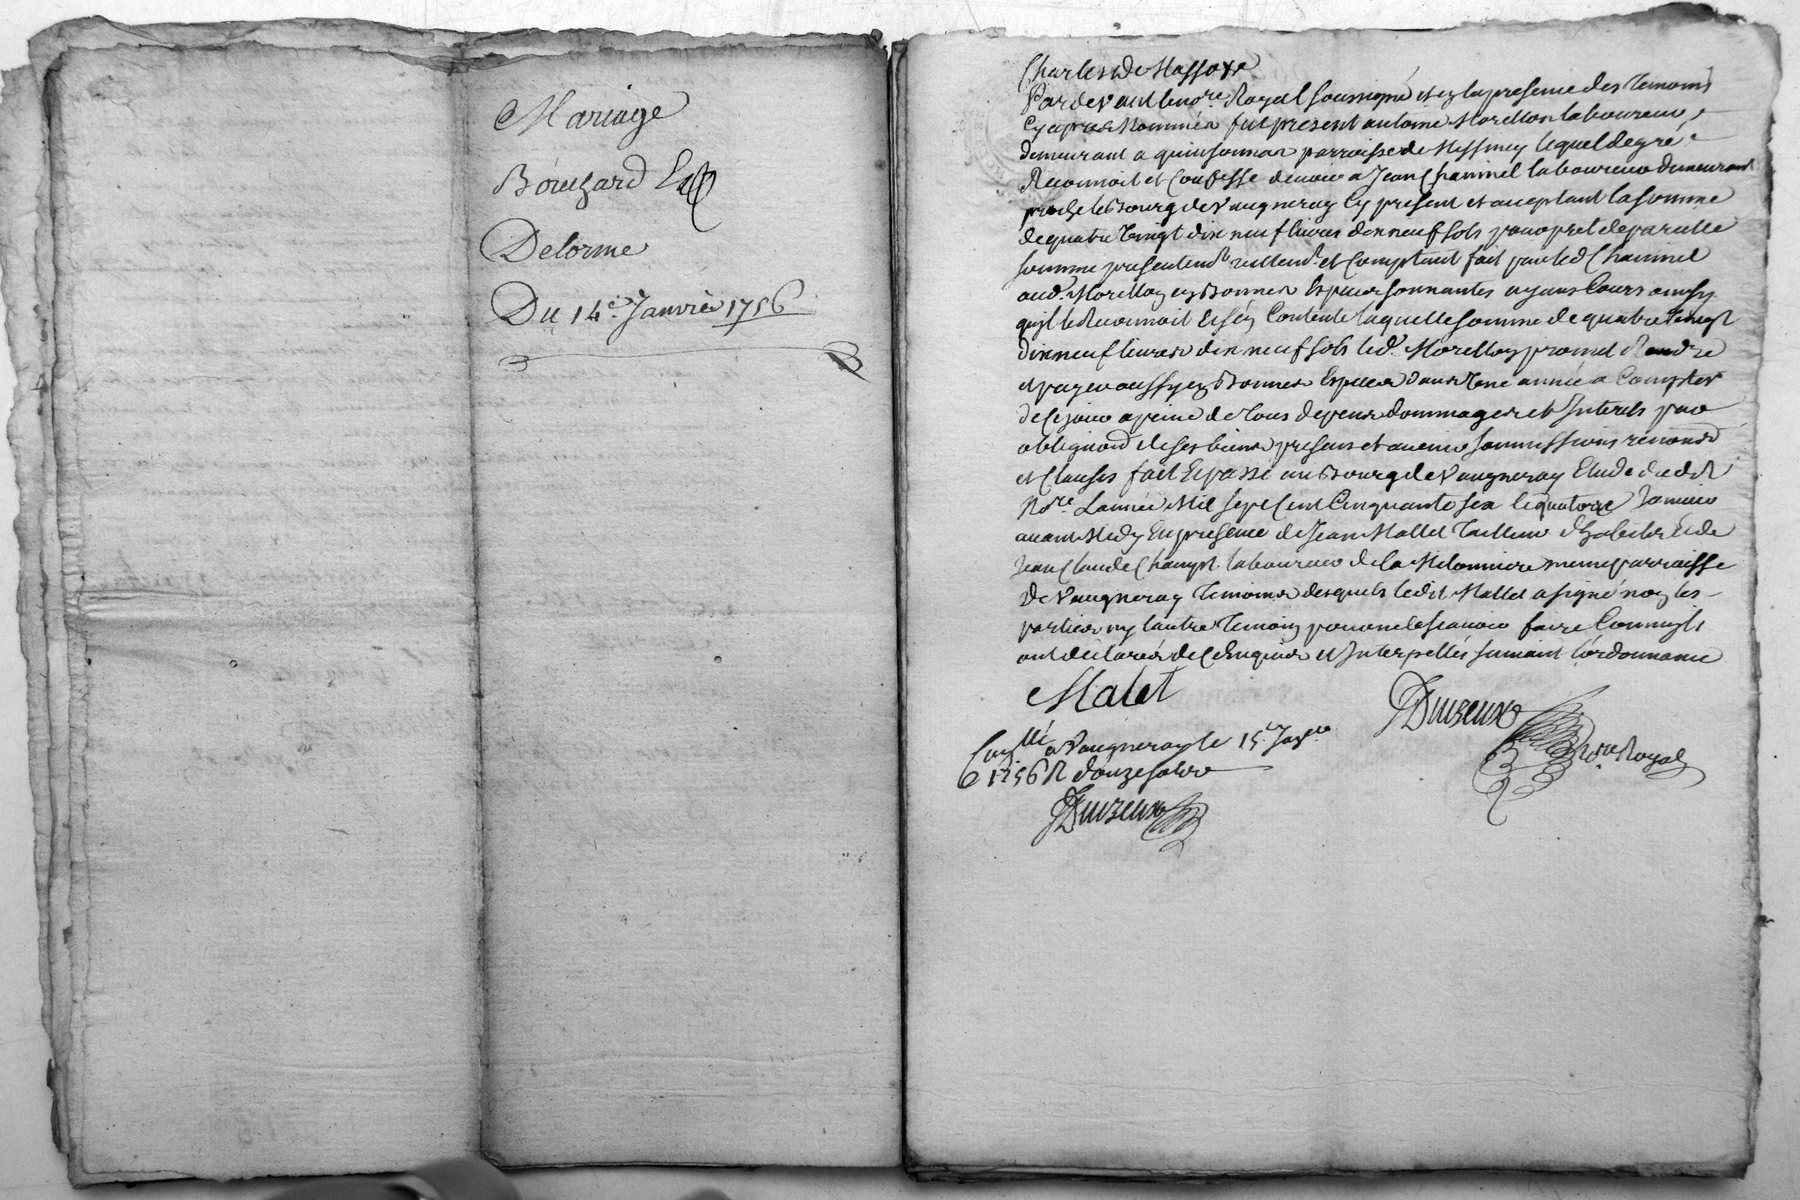 Mariage
Bouchard Et
Delorme
Du 14e. Janvier 1756
Charles de Massoxe
Pardevant le nore Royal soussigné et en la presence des Temoins
cy apres Nommés fut present antoine Morellon laboureur
demeurant a quinsonnas parroisse de Messimy lequel de gré
Reconnoit et Confesse devoir a Jean Chaminel laboureur demeurant
proche le Bourg de Vaugneray Cy present et aceptant la somme
de quatre Vingt dix neuf livres dix neuf sols pour pret de pareille
somme presentemt. reellemt. et Comptant fait par led Chaminel
aud. Morellon en Bonnes Especes sonnantes ayans Cours ainsy
quil le Reconnoit Et sen Contente laquelle somme de quatre Vingt
dix neuf livres dix neuf sols led. Morellon promet Rendre
et payer aussy en Bonnes Especes dans Une année a Compter
de Ce jour a peine de Tous depens dommages et Interets par
obligaon de ses biens presens et avenir soumissions renonaon
et Clauses fait Et passé au Bourg de Vaugneray Etude dud
Nore. L'année Mil sept Cent Cinquante six le quatorze Janvier
avant Midy En presence de Jean Mallet Tailleur d'habits Et de
Jean Claude Champt laboureur de la Milonniere meme parroisse
de Vaugneray Temoins desquels ledit Mallet a signé non les
parties ny lautre Temoin pour ne le scavoir faire Comm'ils
ont declarés de Ce Enquis et Interpellés suivant l'ordonnance
Malet
Duizeux
Nore Royal
Conllé a Vaugneray le 15e. Janer
1756 R douze sols
Duizeux